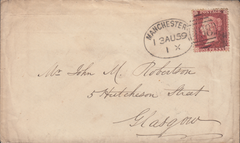 MANCHESTER
13 AU 59
1 X
Mr. John M. Robertson
5 Hutcheson Street
Glasgow